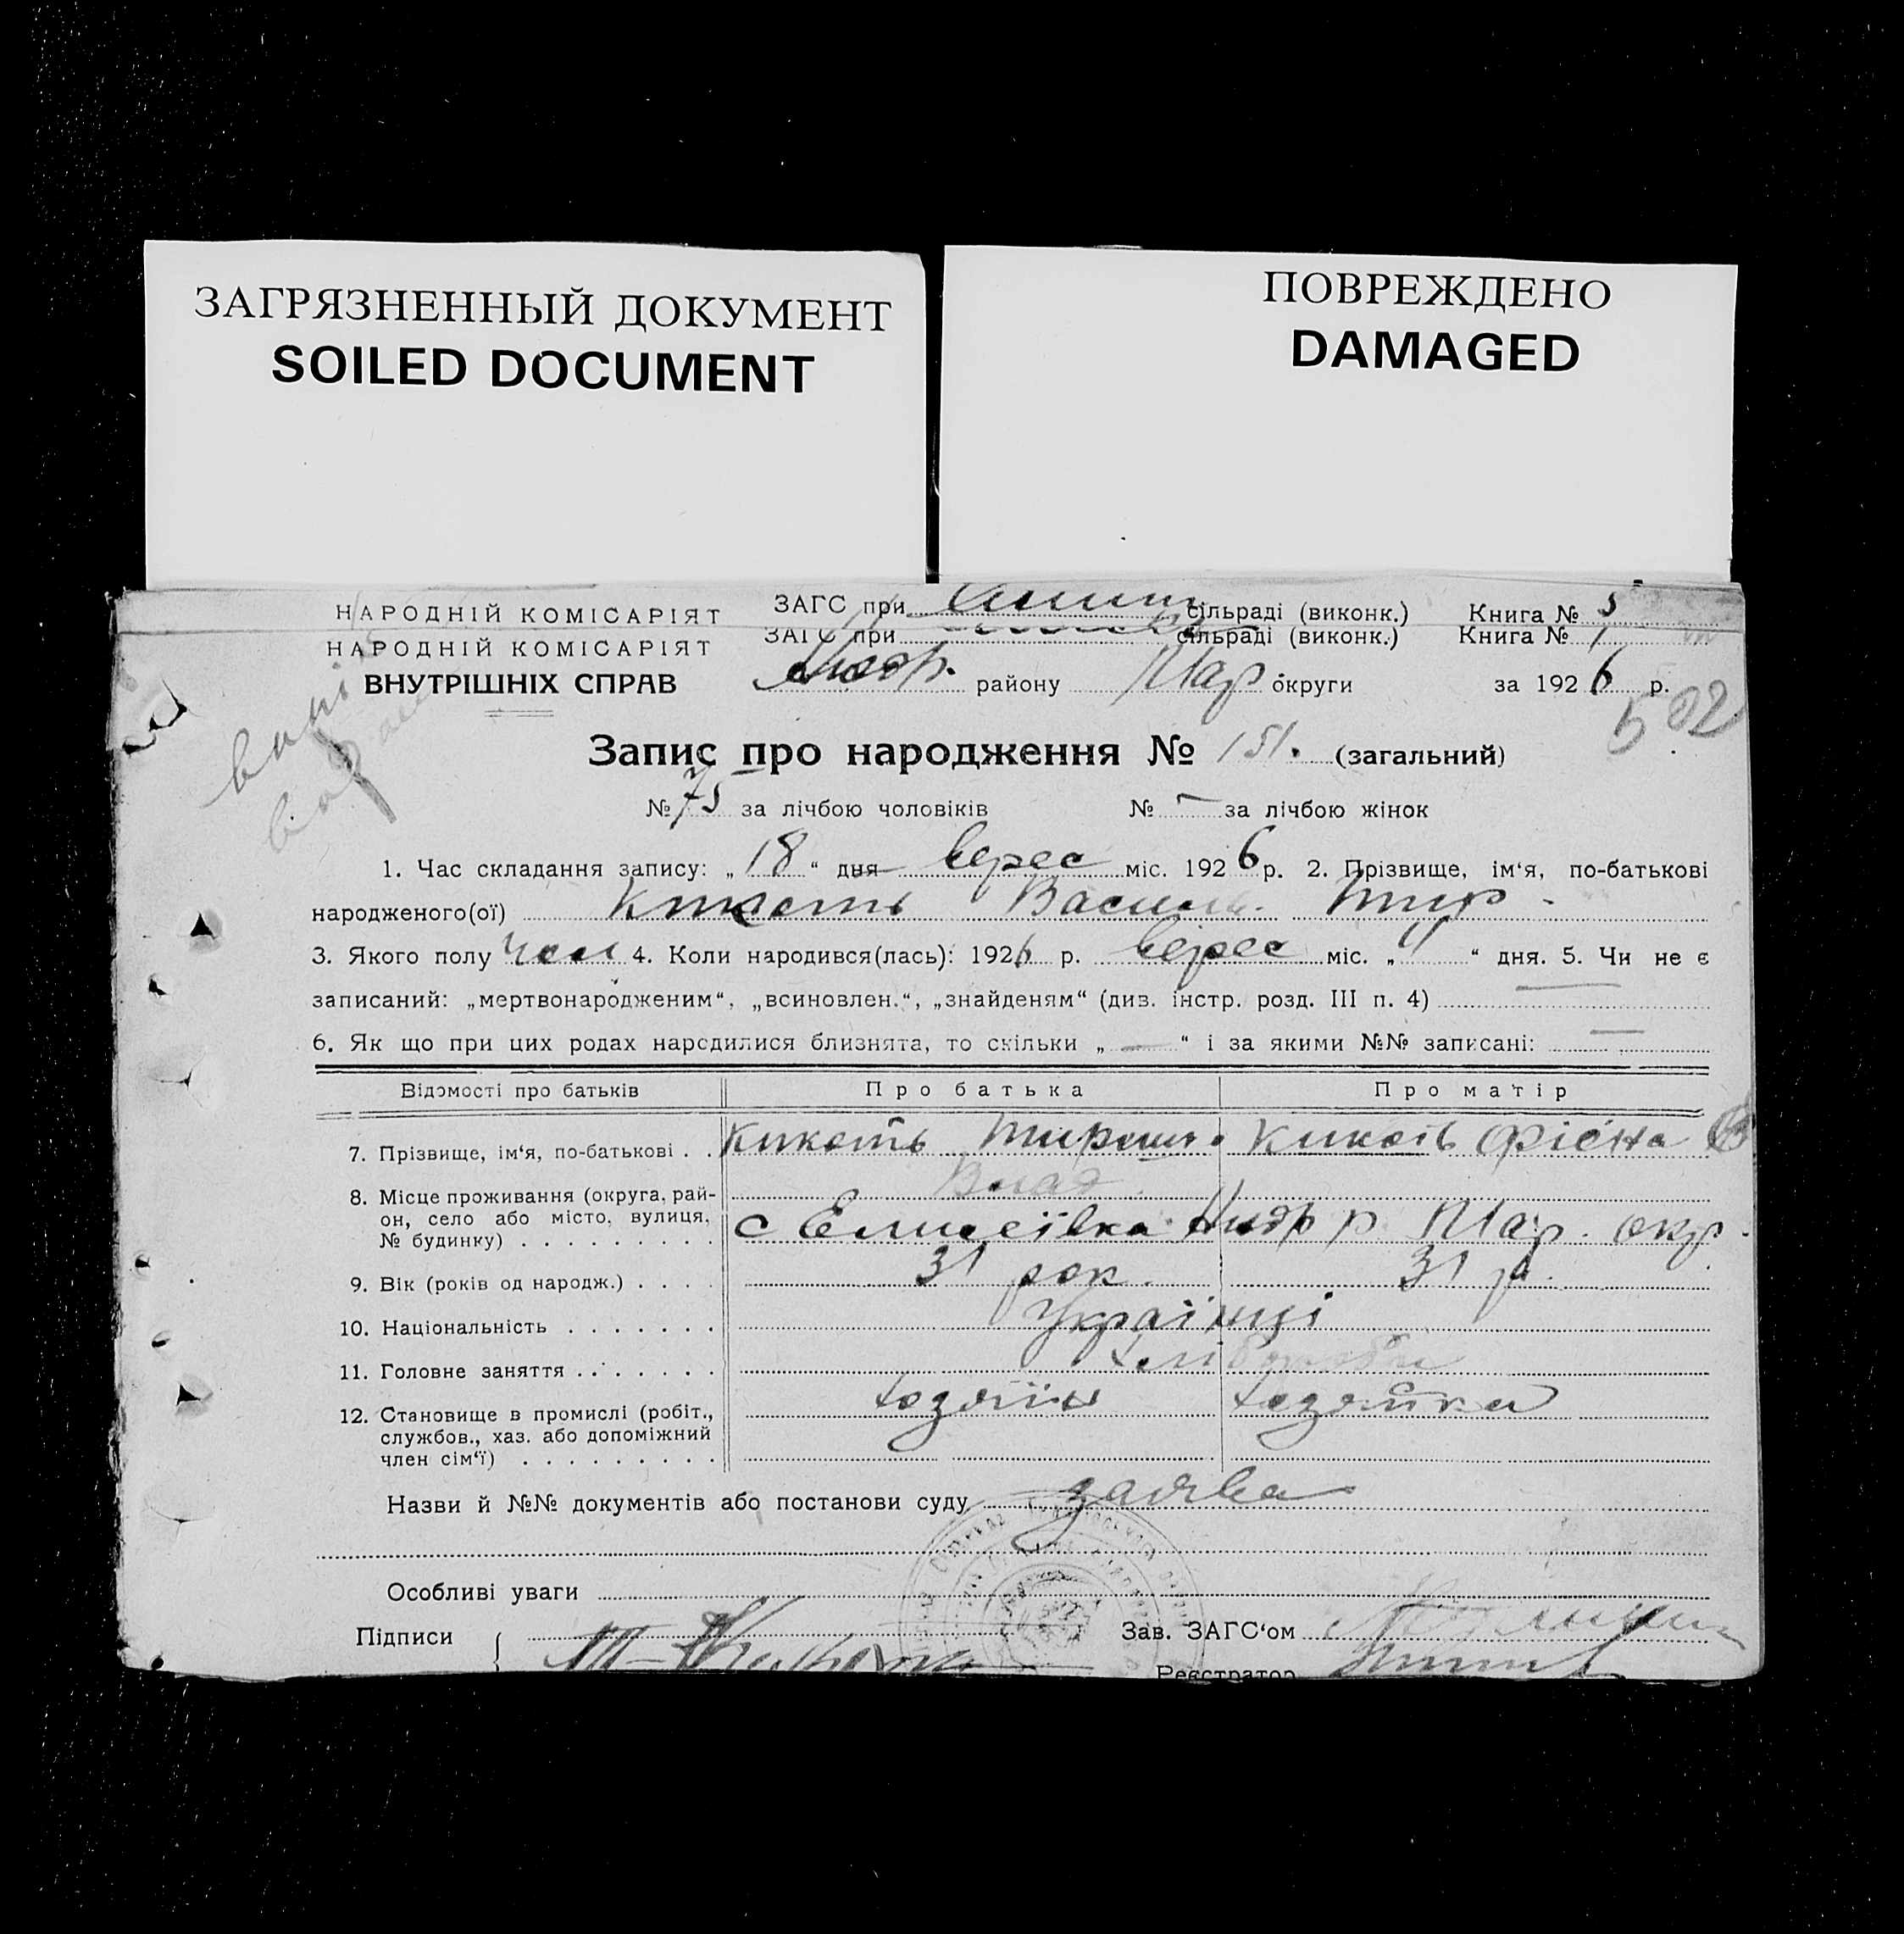 ЗАГРЯЗНЕННЫЙ ДОКУМЕНТ
SOILED DOCUMENT
ПОВРЕЖДЕНО
DAMAGED
НАРОДНІЙ КОМІСАРІЯТ ЗАГС при сільраді (виконк.) Книга №
НАРОДНІЙ КОМІСАРІЯТ ЗАГС при сільраді (виконк.) Книга №
ВНУТРІШНІХ СПРАВ району Мар округи за 1926 р.
502
Запис про народження № 151. (загальний)
№ 75 за лічбою чоловіків № – за лічбою жінок
1. Час складання запису: „18“ дня верес міс. 1926 р. 2. Прізвище, ім‘я, по-батькові
народженого(ої) Василь
3. Якого полу чол 4. Коли народився(лась): 1926 р. верес міс. „11“ дня. 5. Чи не є
записаний: „мертвонародженим“, „всиновлен.“, „знайденям“ (див. інстр. розд. III п. 4) —
6. Як що при цих родах народилися близнята, то скільки „—“ і за якими №№ записані: —
Відомості про батьків Про батька Про матір
7. Прізвище, ім‘я, по-батькові . . Кикоть Кикоть
Влад
8. Місце проживання (округа, рай-
он, село або місто, вулиця,
№ будинку) . . . . . . . . . с Елисеївка р Мар. окр.
9. Вік (років од народж.) . . . . 31 рок. 31 р.
10. Національність . . . . . . . Українці
11. Головне заняття . . . . . . .
12. Становище в промислі (робіт.,
службов., хаз. або допоміжний
член сім‘ї) . . . . . . . . . хозяїн хозяйка
Назви й №№ документів або постанови суду заява
Особливі уваги
Підписи Зав. ЗАГС‘ом
Реєстратор